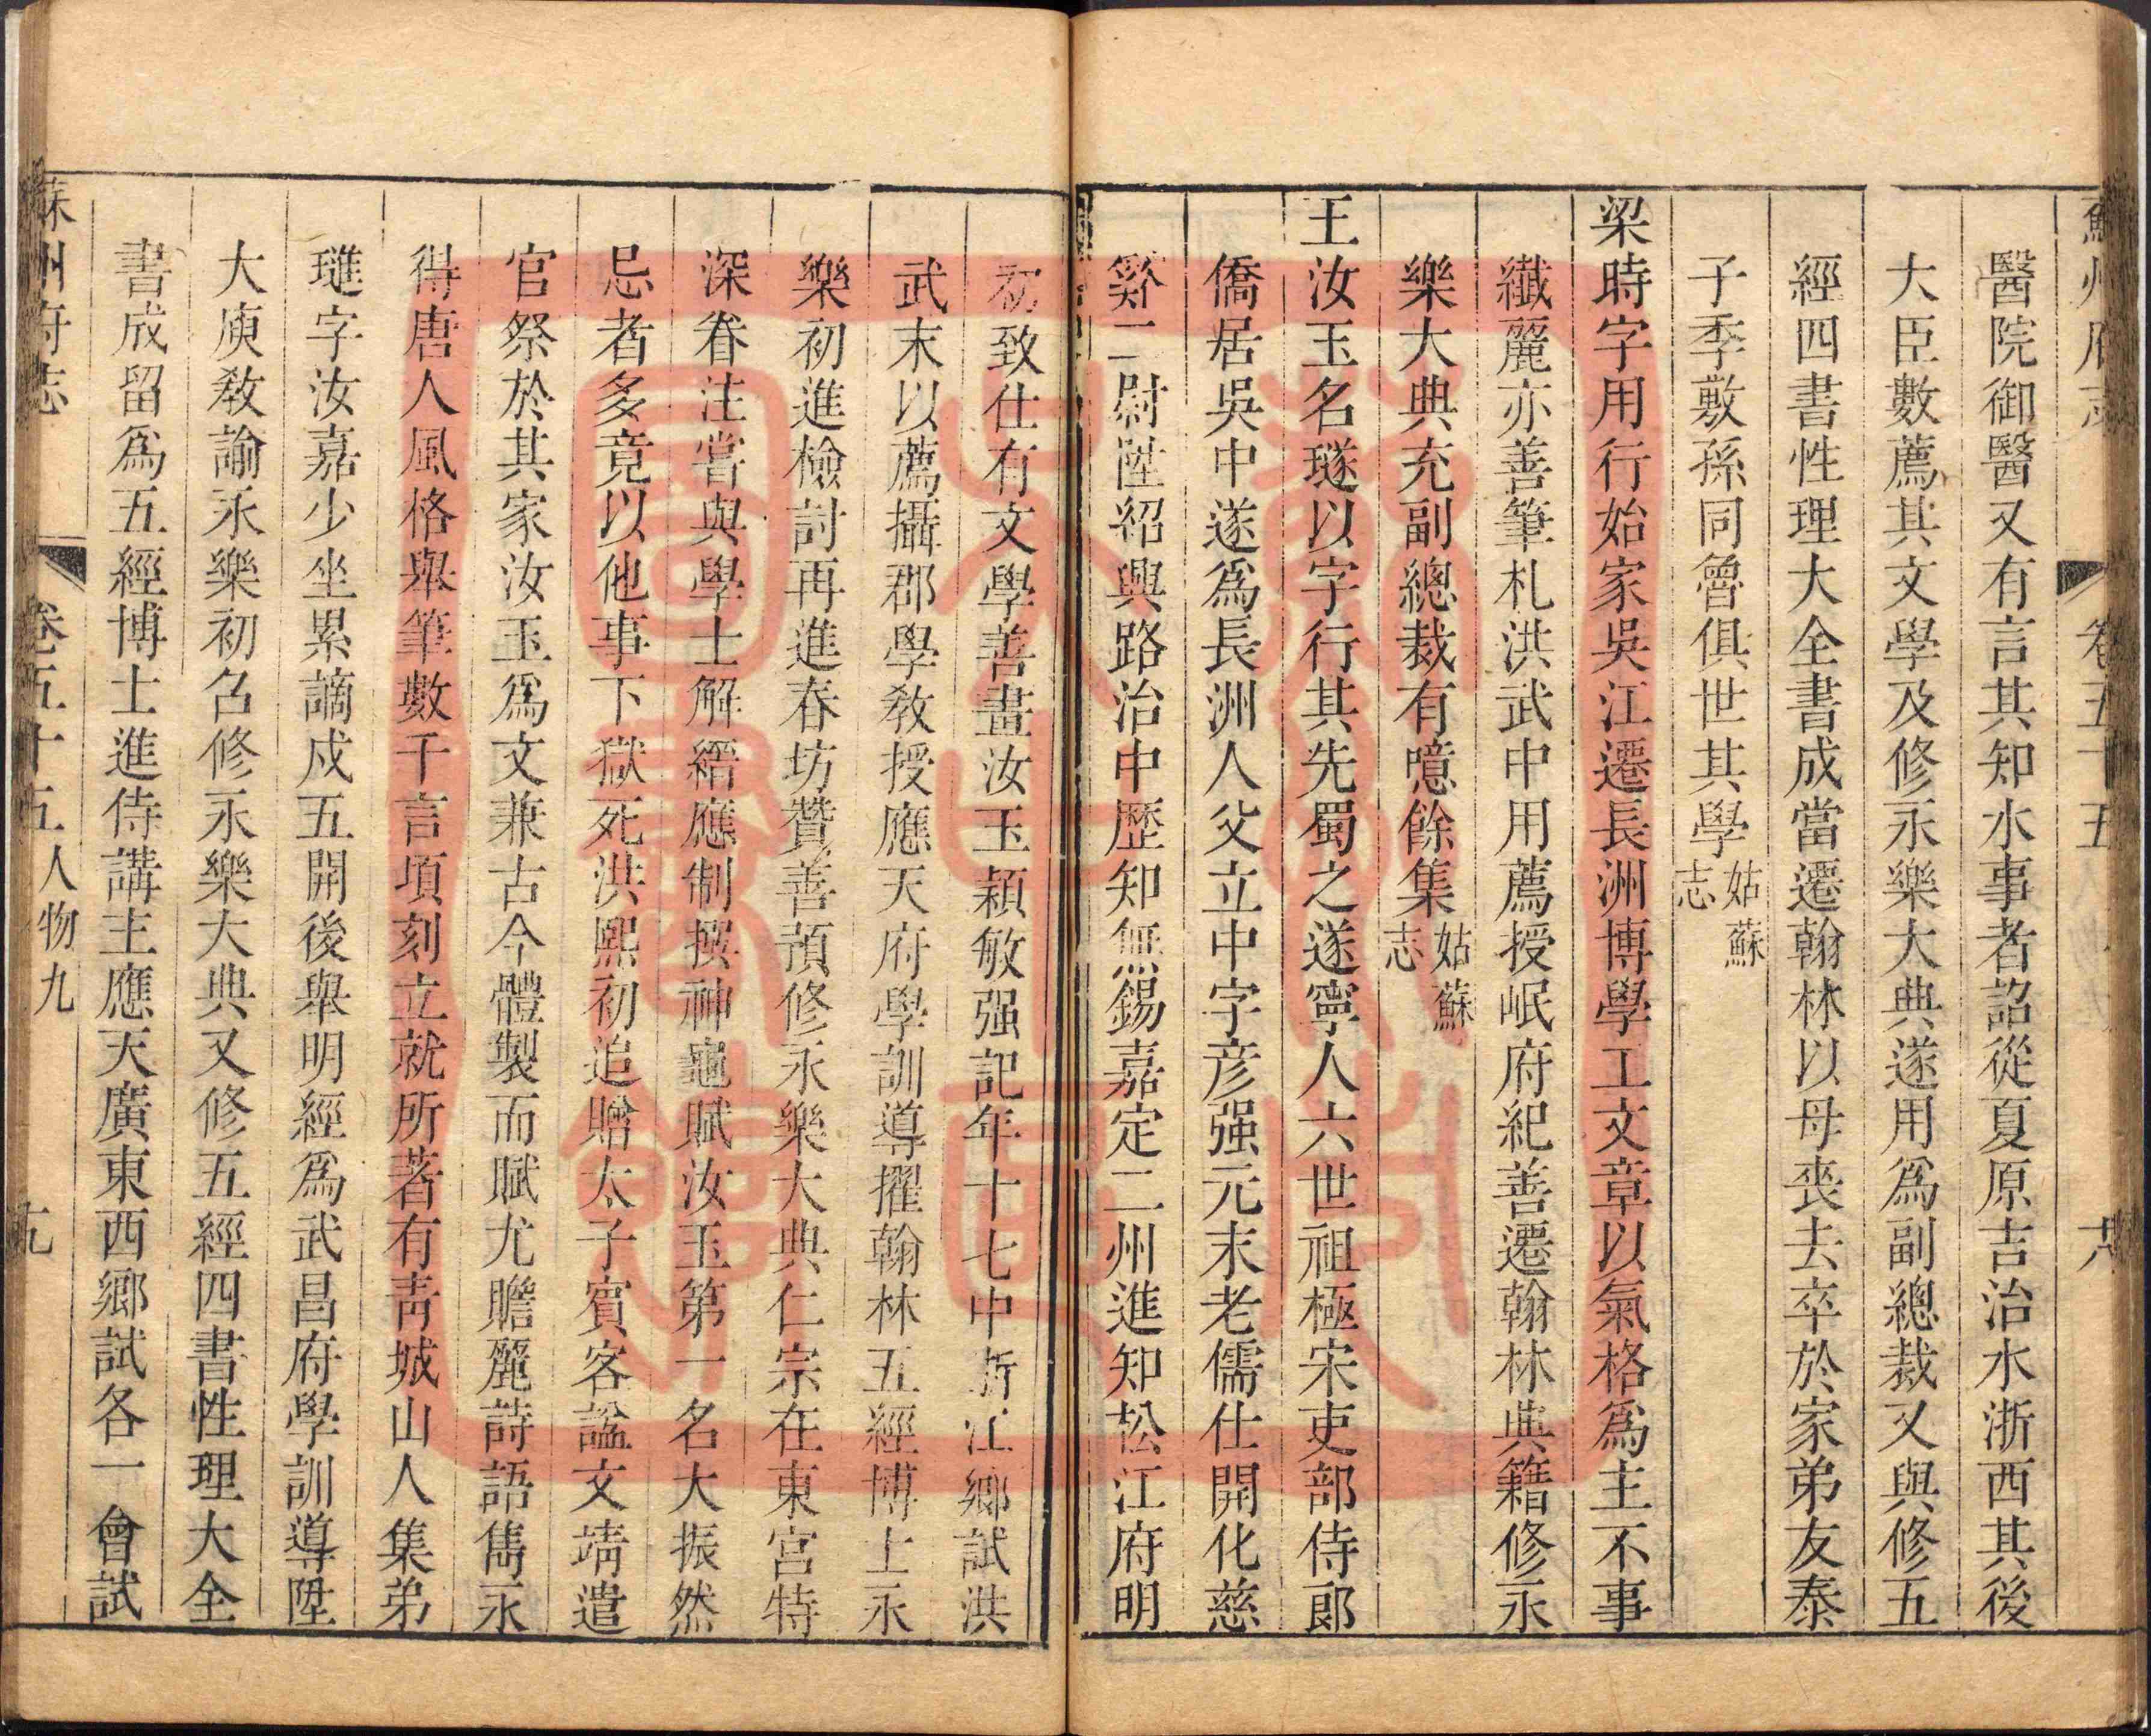 蘇州府志 卷五十五 十八
醫院御醫又有言其知水事者詔從夏原吉治水浙西其後
大臣數薦其文學及修永樂大典遂用爲副總裁又與修五
經四書性理大全書成當遷翰林以母喪去卒於家弟友泰
子季敷孫同魯俱世其學姑蘇志
梁時字用行始家吳江遷長洲博學工文章以氣格爲主不事
纎麗亦善筆札洪武中用薦授岷府紀善遷翰林典籍修永
樂大典充副總裁有噫餘集姑蘇志
王汝玉名璲以字行其先蜀之遂寧人六世祖極宋吏部侍郎
僑居吳中遂爲長洲人父立中字彦强元末老儒仕開化慈
谿二尉陞紹興路治中歷知無錫嘉定二州進知松江府明
初致仕有文學善畫汝玉穎敏强記年十七中浙江鄉試洪
武末以薦攝郡學敎授應天府學訓導擢翰林五經博士永
樂初進檢討再進春坊贊善預修永樂大典仁宗在東宮特
深眷注嘗與學士解縉應制撰神龜賦汝玉第一名大振然
忌者多竟以他事下獄死洪熙初追贈太子賓客諡文靖遣
官祭於其家汝玉爲文兼古今體製而賦尤贍麗詩語雋永
得唐人風格舉筆數千言頃刻立就所著有靑城山人集弟
璡字汝嘉少坐累謫戍五開後舉明經爲武昌府學訓導陞
大庾敎諭永樂初召修永樂大典又修五經四書性理大全
書成留爲五經博士進侍講主應天廣東西鄉試各一會試
蘇州府志 卷五十五 人物九 九